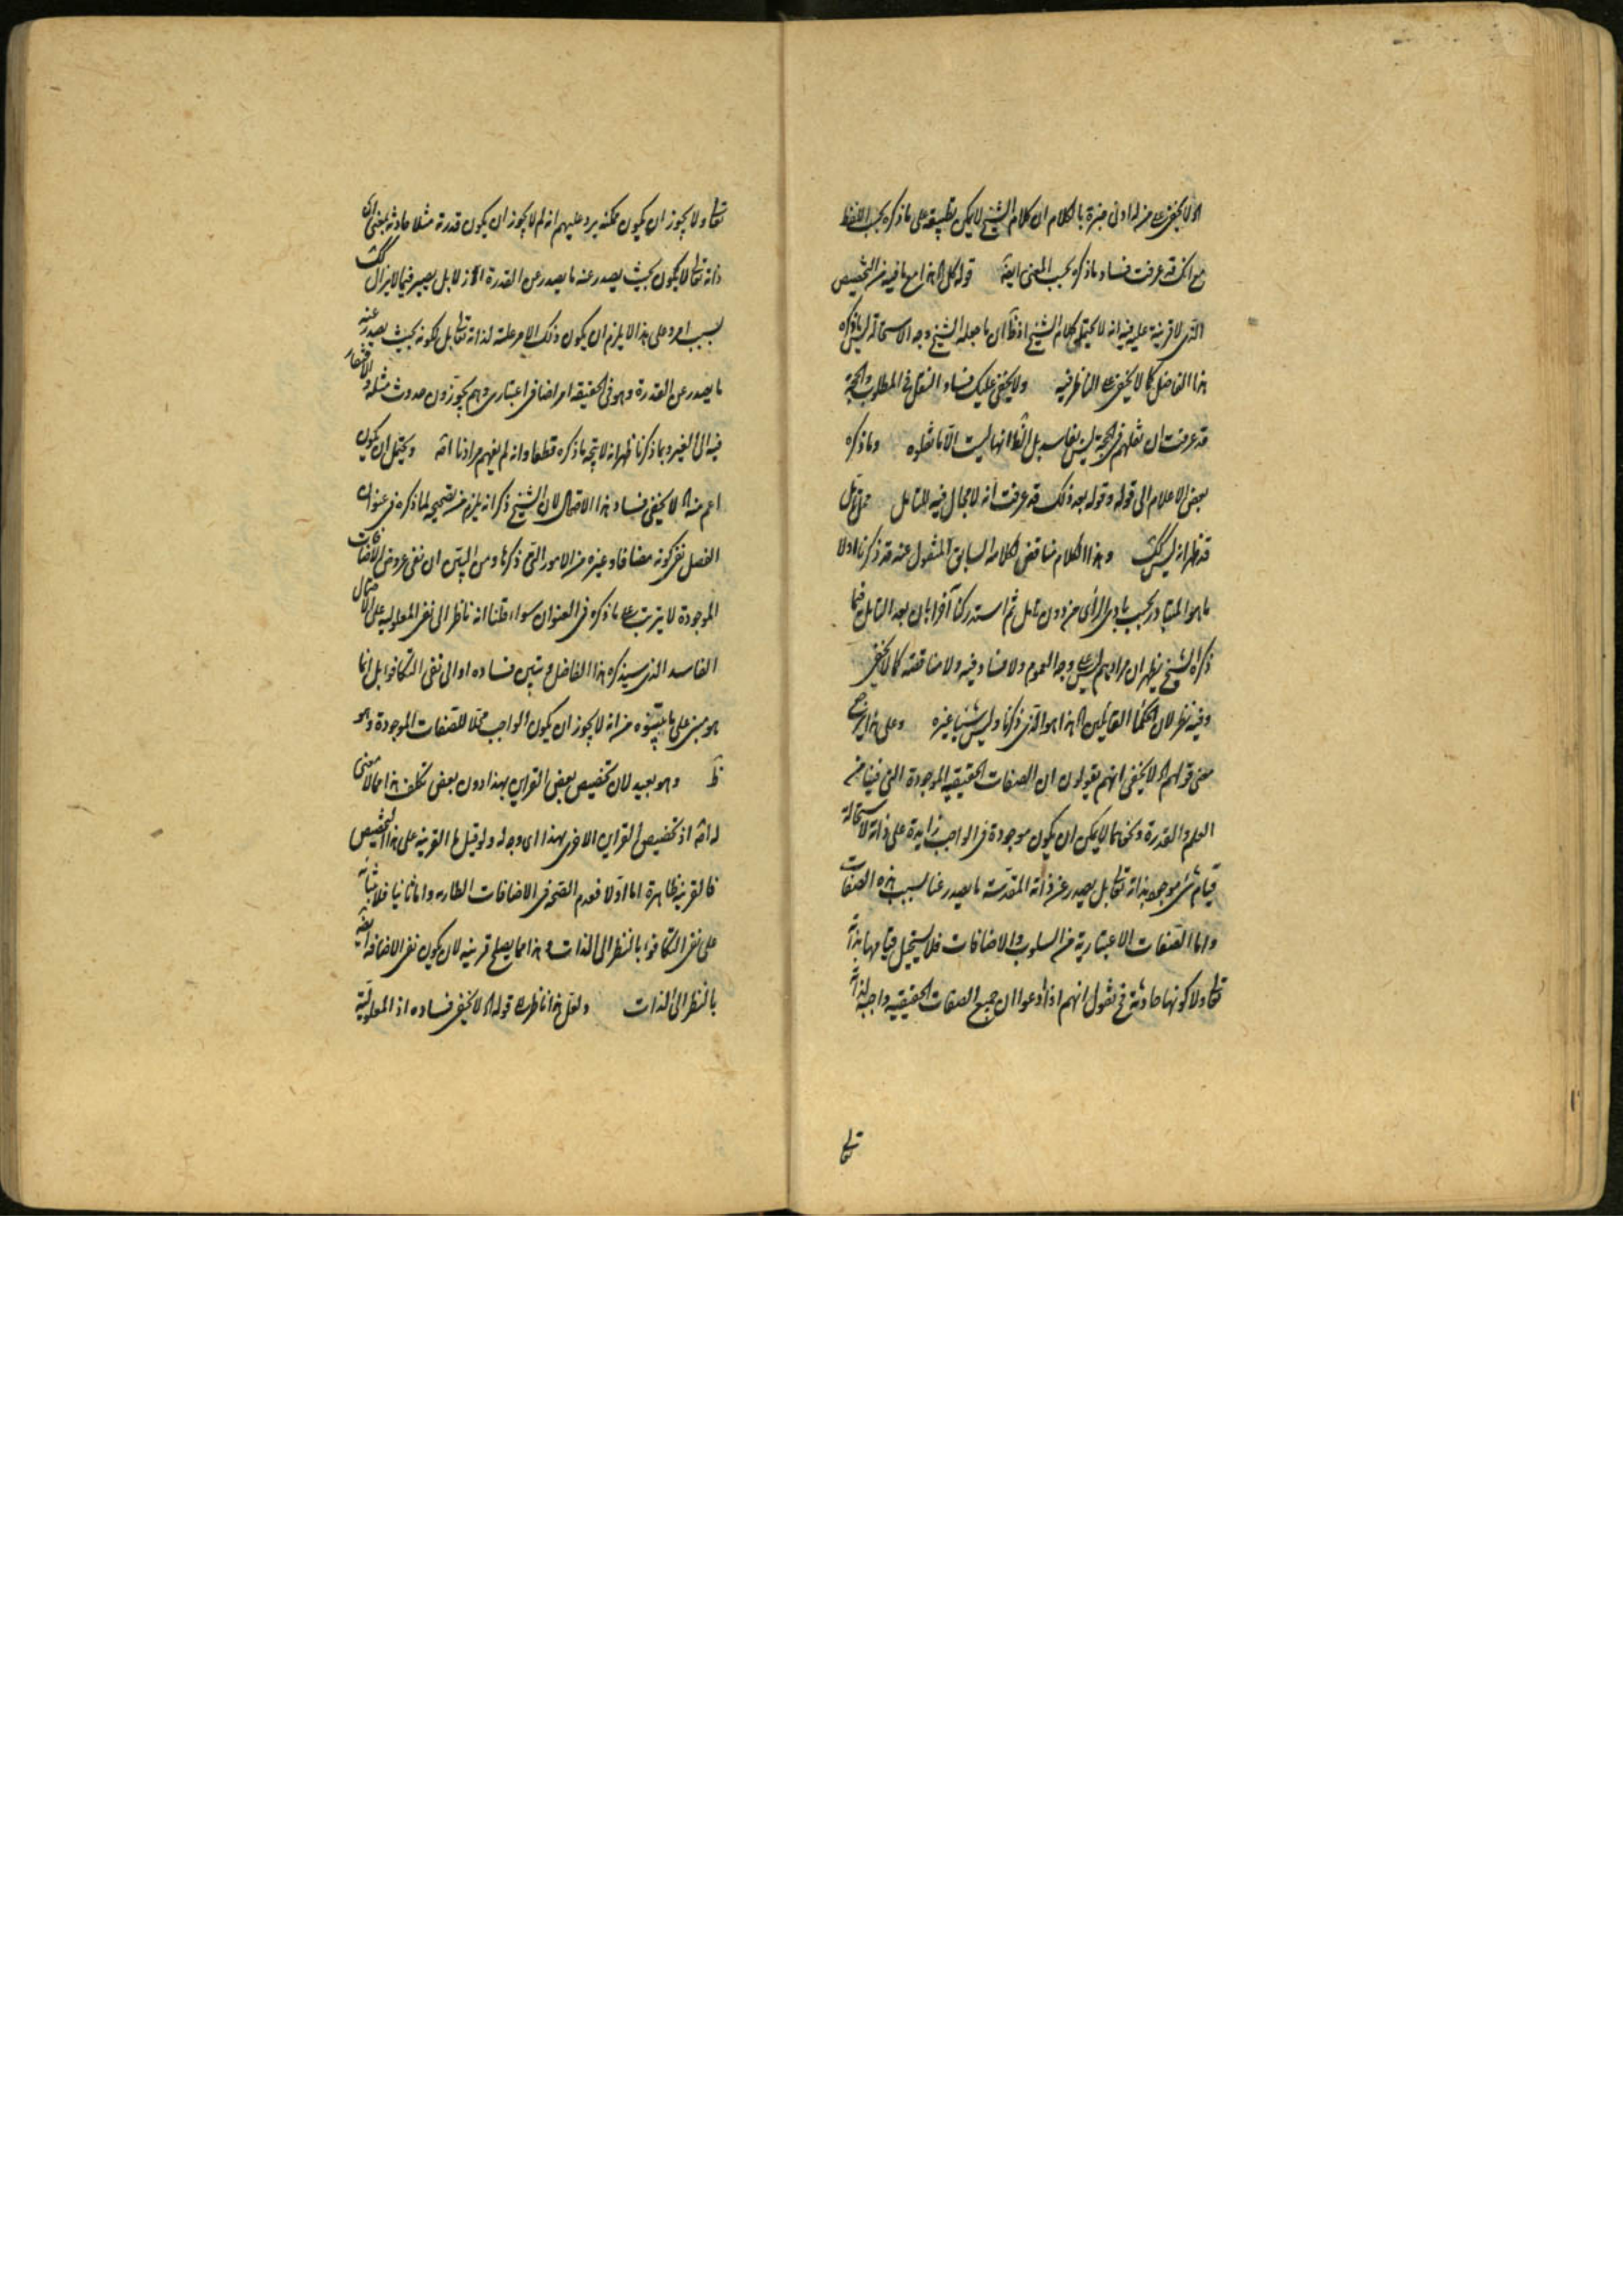 لا يخفى على من له ادنى خبرة بالكلام ان كلام الشيخ لا يمكن تطبيقه على ما ذكره بحسب اللفظ
مع انك قد عرفت فساد ما ذكره بحسب المعنى ايضا قوله هذا مع ما فيه من التخصيص
الذى لا قرينة عليه فيه انه لا يحتمل كلام الشيخ اذ ان ما جعله الشيخ وجه الاستحالة ليس ما ذكره
هذا الفاضل كما لا يخفى على الناظر فيه ولا يخفى عليك فساد النقل فى المطلوب والحجة
قد عرفت ان نقلهم فى الحجة ليس بفاسد بل انها ليست الا ما نقلوه وما ذكره
بعض الاعلام الى قوله وقوله بعد ذلك قد عرفت انه لا مجال فيه للتامل
قد ظهر انه ليس كك وهذا الكلام مناقض لكلامه السابق المنقول عنه قد ذكرنا اولا
ما هو المتبادر بحسب بادى الرأى من دون تامل ثم استدركنا آخرا بان بعد التامل فيما
ذكره الشيخ يظهر ان مرادهم ليس على وجه العموم ولا فساد فيه ولا مناقضة كما لا يخفى
وفيه نظر لان الحكماء القائلين هذا هو الذى ذكرنا وليس شيئا غيره وعلى هذا يرجع
معنى قولهم لا يخفى انهم يقولون ان الصفات الحقيقيه الموجودة التى فينا من
العلم والقدرة ونحوهما لا يمكن ان يكون موجودة فى الواجب زايدة على ذاته لاستحالة
قيام شئ موجود بذاته تعالى بل يصدر عن ذاته المقدسة ما يصدر عنا بسبب هذه الصفات
واما الصفات الاعتبارية من السلوب والاضافات فلا يستحيل قيامها بذاته
تعالى ولا كونها حادثة فح نقول انهم اذا ادعوا ان جميع الصفات الحقيقيه واجبة لذاته
تعالى
تعالى ولا يجوز ان يكون ممكنه يرد عليهم انه لم لا يجوز ان يكون قدرة مثلا حادثة بمعنى ان
ذاته تعالى لا يكون بحيث يصدر عنه ما يصدر عن القدرة ازلا بل يصير فيما لا يزال كك
بسبب امر وعلى هذا لا يلزم ان يكون ذلك الامر علة لذاته تعالى بل لكونه بحيث يصدر عنه
ما يصدر عن القدرة وهو فى الحقيقه امر اضافى اعتبارى وهم يجوزون حدوث مثله والافتقار
فيه الى الغير وبما ذكرنا ظهر انه لا يتجه ما ذكره قطعا وانه لم يفهم مرادنا اصلا ويحتمل ان يكون
اعم منه لا يخفى فساد هذا الاحتمال لان الشيخ ذكر انه يلزم من تصحيحه لما ذكره فى عنوان
الفصل نفى كونه مضافا وغيره من الامور التى ذكرها ومن البين ان نفى عروض الاضافات
الموجودة لا يترتب على ما ذكره فى العنوان سواء قلنا انه ناظر الى نفى المعلولية على الاحتمال
الفاسد الذى سيذكره هذا الفاضل ونبين فساده او الى نفى التكافؤ بل انما
هو مبنى على ما من انه لا يجوز ان يكون الواجب محلا للصفات الموجودة وهو
ظ وهو بعيد لان تخصيص بعض القراين بهذا دون بعض تكلف هذا مما لا معنى
له اصلا اذ تخصيص القراين الاخرى بهذا اى وجه له ولو قيل ما القرينة على هذا التخصيص
فالقرينة ظاهرة اما اولا فعدم الصحة فى الاضافات الطارية واما ثانيا فلابتنائه
على نفى التكافؤ بالنظر الى الذات وهذا مما يصلح قرينة لان يكون نفى الاضافة ايضا
بالنظر الى الذات ولعل هذا ناظر قوله لا يخفى فساده اذ المعلولية